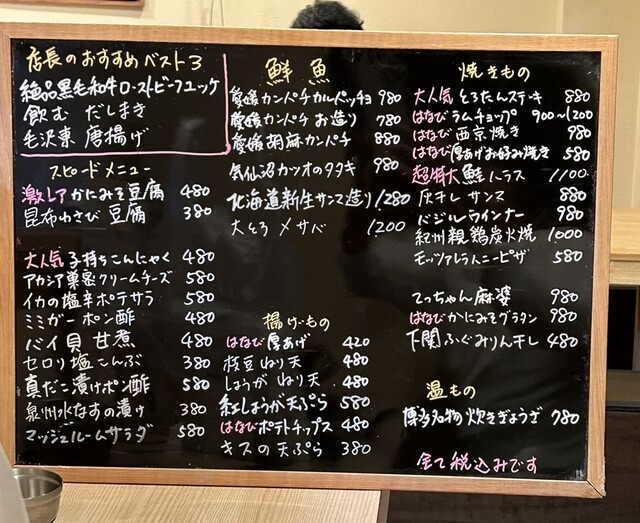 店長のおすすめベスト3
絶品黒毛和牛ローストビーフユッケ
飲む だしまき
毛沢東 唐揚げ
スピードメニュー
激レア かにみそ豆腐 480
昆布わさび 豆腐 380
大人気 子持ちこんにゃく 480
アカシア巣蜜クリームチーズ 580
イカの塩辛ポテサラ 580
ミミガーポン酢 480
バイ貝 甘煮 480
セロリ塩こんぶ 380
真だこ漬けポン酢 580
泉州水なすの漬け 380
マッシュルームサラダ 580
鮮魚
愛媛カンパチカルパッチョ 980
愛媛カンパチお造り 780
愛媛胡麻カンパチ 880
気仙沼カツオのタタキ 980
北海道新生サンマ造り 1280
大とろ 〆サバ 1200
揚げもの
はなび厚あげ 420
枝豆ねり天 480
しょうが ねり天 480
紅しょうが天ぷら 580
はなびポテトチップス 480
キスの天ぷら 380
焼きもの
大人気 とろたんステーキ 880
はなび ラムチョップ 900〜1200
はなび 西京焼き 980
はなび厚あげお好み焼き 580
超特大鮭ハラス 1100
灰干しサンマ 880
バジルウインナー 980
紀州親鶏炭火焼 1000
モッツァレラハニーピザ 580
てっちゃん麻婆 980
はなびかにみそグラタン 980
下関ふぐみりん干し 480
温もの
博多名物 炊きぎょうざ 780
全て税込みです